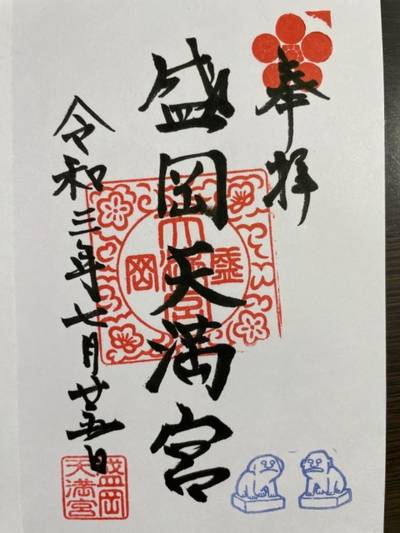 奉拝
盛岡天満宮
令和三年七月廿五日
盛岡
天満宮
盛岡
天満宮